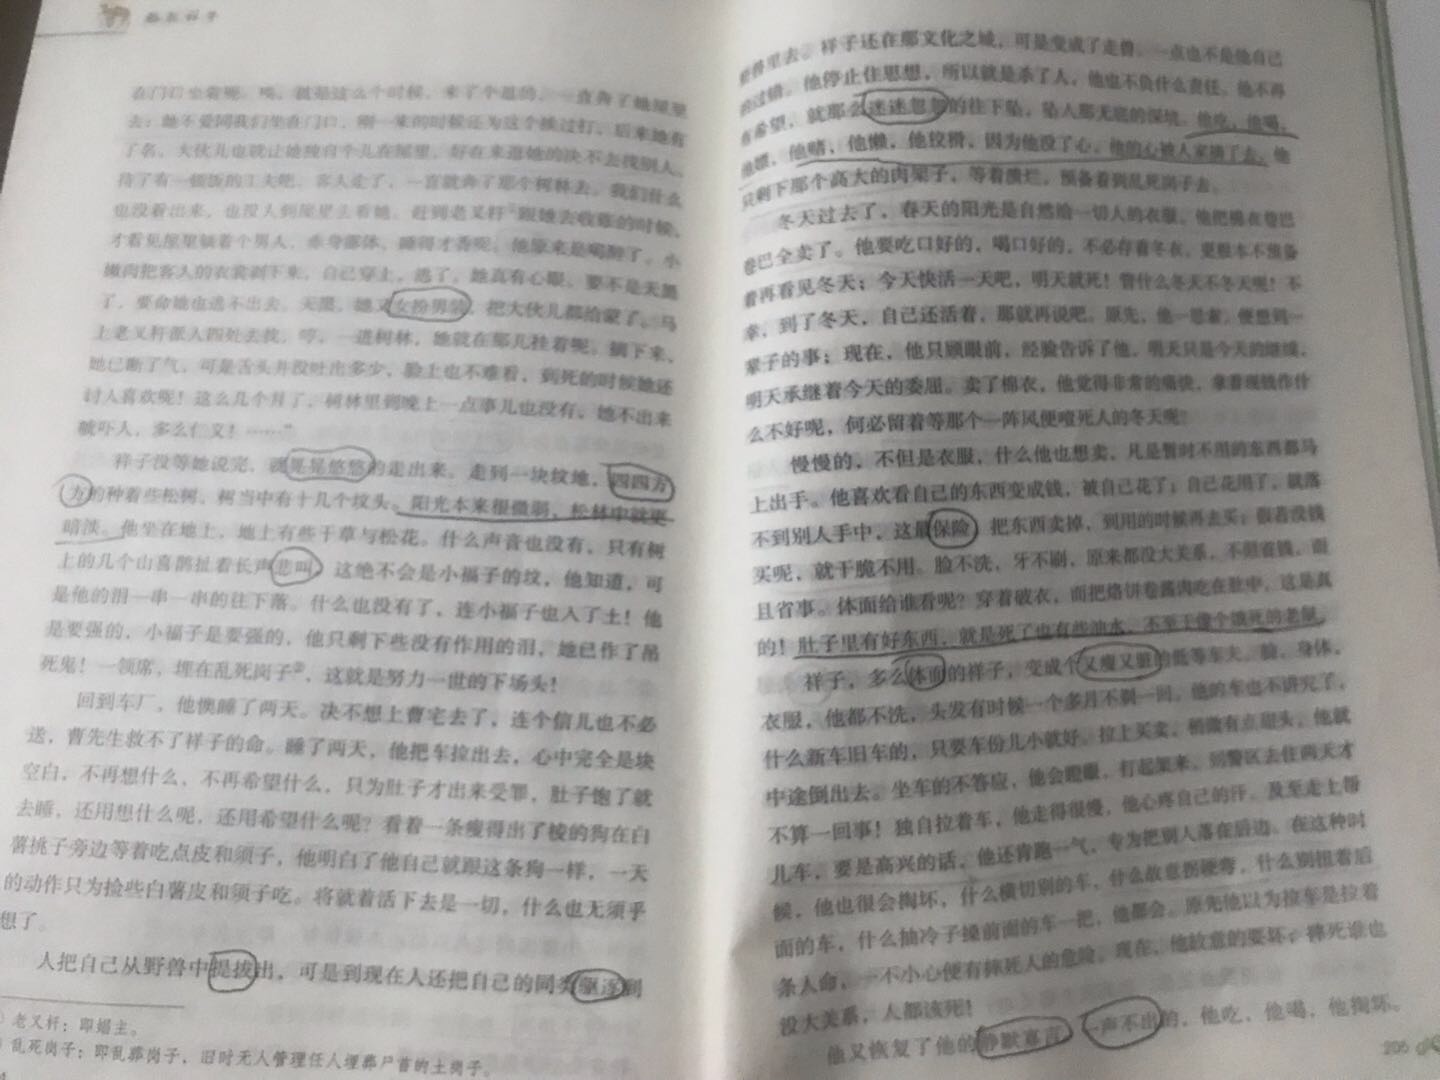 骆驼祥子
在门口坐着呢。唉，就是这么个时候，来了个逛的，一直奔了她屋里
去；她不爱同我们坐在门口，刚一来的时候还为这个挨过打，后来她有
了名，大伙儿也就让她独自个儿在屋里，好在来逛她的决不去找别人。
待了有一顿饭的工夫吧，客人走了，一直就奔了那个树林去。我们什么
也没看出来，也没人到屋里去看她。赶到老叉杆跟她去收账的时候，
才看见屋里躺着个男人，赤身露体，睡得才香呢。他原来是喝醉了。小
嫩肉把客人的衣裳剥下来，自己穿上，逃了。她真有心眼。要不是天黑
了，要命她也逃不出去。天黑，她又女扮男装，把大伙儿都给蒙了。马
上老叉杆派人四处去找，哼，一进树林，她就在那儿挂着呢。摘下来，
她已断了气，可是舌头并没吐出多少，脸上也不难看，到死的时候她还
讨人喜欢呢！这么几个月了，树林里到晚上一点事儿也没有，她不出来
唬吓人，多么仁义！……”
祥子没等她说完，就晃晃悠悠的走出来。走到一块坟地，四四方
方的种着些松树，树当中有十几个坟头。阳光本来很微弱，松林中就更
暗淡。他坐在地上，地上有些干草与松花。什么声音也没有，只有树
上的几个山喜鹊扯着长声悲叫。这绝不会是小福子的坟，他知道，可
是他的泪一串一串的往下落。什么也没有了，连小福子也入了土！他
是要强的，小福子是要强的，他只剩下些没有作用的泪，她已作了吊
死鬼！一领席，埋在乱死岗子②，这就是努力一世的下场头！
回到车厂，他懊睡了两天。决不想上曹宅去了，连个信儿也不必
送，曹先生救不了祥子的命。睡了两天，他把车拉出去，心中完全是块
空白，不再想什么，不再希望什么，只为肚子才出来受罪，肚子饱了就
去睡，还用想什么呢，还用希望什么呢？看着一条瘦得出了棱的狗在白
薯挑子旁边等着吃点皮和须子，他明白了他自己就跟这条狗一样，一天
的动作只为捡些白薯皮和须子吃。将就着活下去是一切，什么也无须乎
想了。
人把自己从野兽中提拔出，可是到现在人还把自己的同类驱逐到
老叉杆：即娼主。
乱死岗子：即乱葬岗子，旧时无人管理任人埋葬尸首的土岗子。
野兽里去。祥子还在那文化之城，可是变成了走兽。一点也不是他自己
的过错。他停止住思想，所以就是杀了人，他也不负什么责任。他不再
有希望，就那么迷迷忽忽的往下坠，坠入那无底的深坑。他吃，他喝，
他嫖，他赌，他懒，他狡猾，因为他没了心，他的心被人家摘了去。他
只剩下那个高大的肉架子，等着溃烂，预备着到乱死岗子去。
冬天过去了，春天的阳光是自然给一切人的衣服，他把棉衣卷巴
卷巴全卖了。他要吃口好的，喝口好的，不必存着冬衣，更根本不预备
着再看见冬天；今天快活一天吧，明天就死！管什么冬天不冬天呢！不
幸，到了冬天，自己还活着，那就再说吧。原先，他一思索，便想到一
辈子的事；现在，他只顾眼前。经验告诉了他，明天只是今天的继续，
明天承继着今天的委屈。卖了棉衣，他觉得非常的痛快，拿着现钱作什
么不好呢，何必留着等那个一阵风便噎死人的冬天呢？
慢慢的，不但是衣服，什么他也想卖，凡是暂时不用的东西都马
上出手。他喜欢看自己的东西变成钱，被自己花了；自己花用了，就落
不到别人手中，这最保险。把东西卖掉，到用的时候再去买；假若没钱
买呢，就干脆不用。脸不洗，牙不刷，原来都没大关系，不但省钱，而
且省事。体面给谁看呢？穿着破衣，而把烙饼卷酱肉吃在肚中，这是真
的！肚子里有好东西，就是死了也有些油水，不至于像个饿死的老鼠。
祥子，多么体面的祥子，变成个又瘦又脏的低等车夫。脸，身体，
衣服，他都不洗，头发有时候一个多月不剃一回。他的车也不讲究了，
什么新车旧车的，只要车份儿小就好。拉上买卖，稍微有点甜头，他就
中途倒出去。坐车的不答应，他会瞪眼，打起架来，到警区去住两天才
不算一回事！独自拉着车，他走得很慢，他心疼自己的汗。及至走上帮
儿车，要是高兴的话，他还肯跑一气，专为把别人落在后边。在这种时
候，他也很会掏坏，什么横切别的车，什么故意拐硬弯，什么别扭着后
面的车，什么抽冷子搡前面的车一把，他都会。原先他以为拉车是拉着
条人命，一不小心便有摔死人的危险。现在，他故意的要坏；摔死谁也
没大关系，人都该死！
他又恢复了他的静默寡言。一声不出的，他吃，他喝，他掏坏。
205